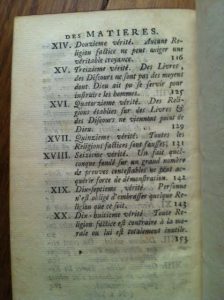 DES MATIERES.
XIV. Douzieme vérité. Aucune Re-
ligion factice ne peut exiger une
véritable croyance. 116
XV. Treizieme vérité. Des Livres,
des Discours ne sont pas des moyens
dont Dieu ait pu se servir pour
instruire les hommes. 125
XVI. Quatorzieme vérité. Des Reli-
gions établies sur des Livres &
des Discours ne viennent point de
Dieu. 129
XVII. Quinzieme vérité. Toutes les
Religions factices sont fausses; 131
XVIII. Seizieme vérité. Un fait quel-
conque fondé sur un grand nombre
de preuves contestables ne peut ac-
quérir force de démonstration. 142
XIX. Dix-septieme vérité. Personne
n'est obligé d'embrasser quelque Re-
ligion que ce soit. 147
XX. Dix-huitieme vérité. Toute Re-
ligion factice est contraire à la mo-
rale ou lui est totalement inutile.
153